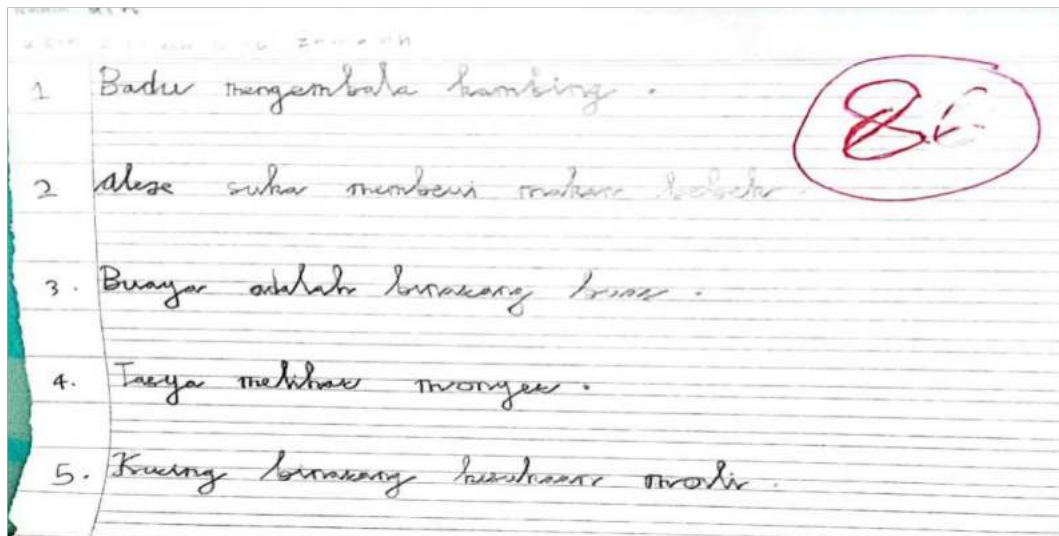 1 Badu mengembala kambing .
86
2 Alexe suka memberi makan bebek .
3 . Buaya adalah binatang buas .
4 . Tasya melihat monyet .
5 . Kucing binatang kesukaan